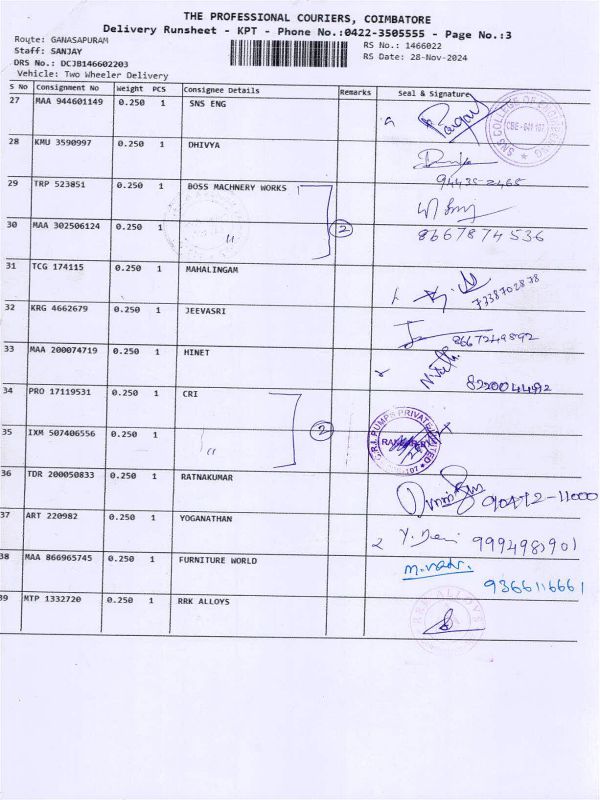 THE PROFESSIONAL COURIERS, COIMBATORE
Delivery Runsheet - KPT - Phone No.:0422-3505555 - Page No.:3
Route: GANASAPURAM
Staff: SANJAY
DRS No.: DCJB146602203
Vehicle: Two Wheeler Delivery
RS No.: 1466022
RS Date: 28-Nov-2024
S No Consignment No Weight PCS Consignee Details Remarks Seal & Signature
27 MAA 944601149 0.250 1 SNS ENG
SNS COLLEGE OF ENGINEERING CBE - 641 107
28 KMU 3590997 0.250 1 DHIVYA
94435-2465
29 TRP 523851 0.250 1 BOSS MACHNERY WORKS
30 MAA 302506124 0.250 1 " 2 8667874536
31 TCG 174115 0.250 1 MAHALINGAM
7338702878
32 KRG 4662679 0.250 1 JEEVASRI
8667249892
33 MAA 200074719 0.250 1 HINET
8220044192
34 PRO 17119531 0.250 1 CRI
C.R.I. PUMPS PRIVATE LIMITED
35 IXM 507406556 0.250 1 " 2
36 TDR 200050833 0.250 1 RATNAKUMAR
90472-11000
37 ART 220982 0.250 1 YOGANATHAN
9994987901
38 MAA 866965745 0.250 1 FURNITURE WORLD
9366116661
39 MTP 1332720 0.250 1 RRK ALLOYS
RRK ALLOYS